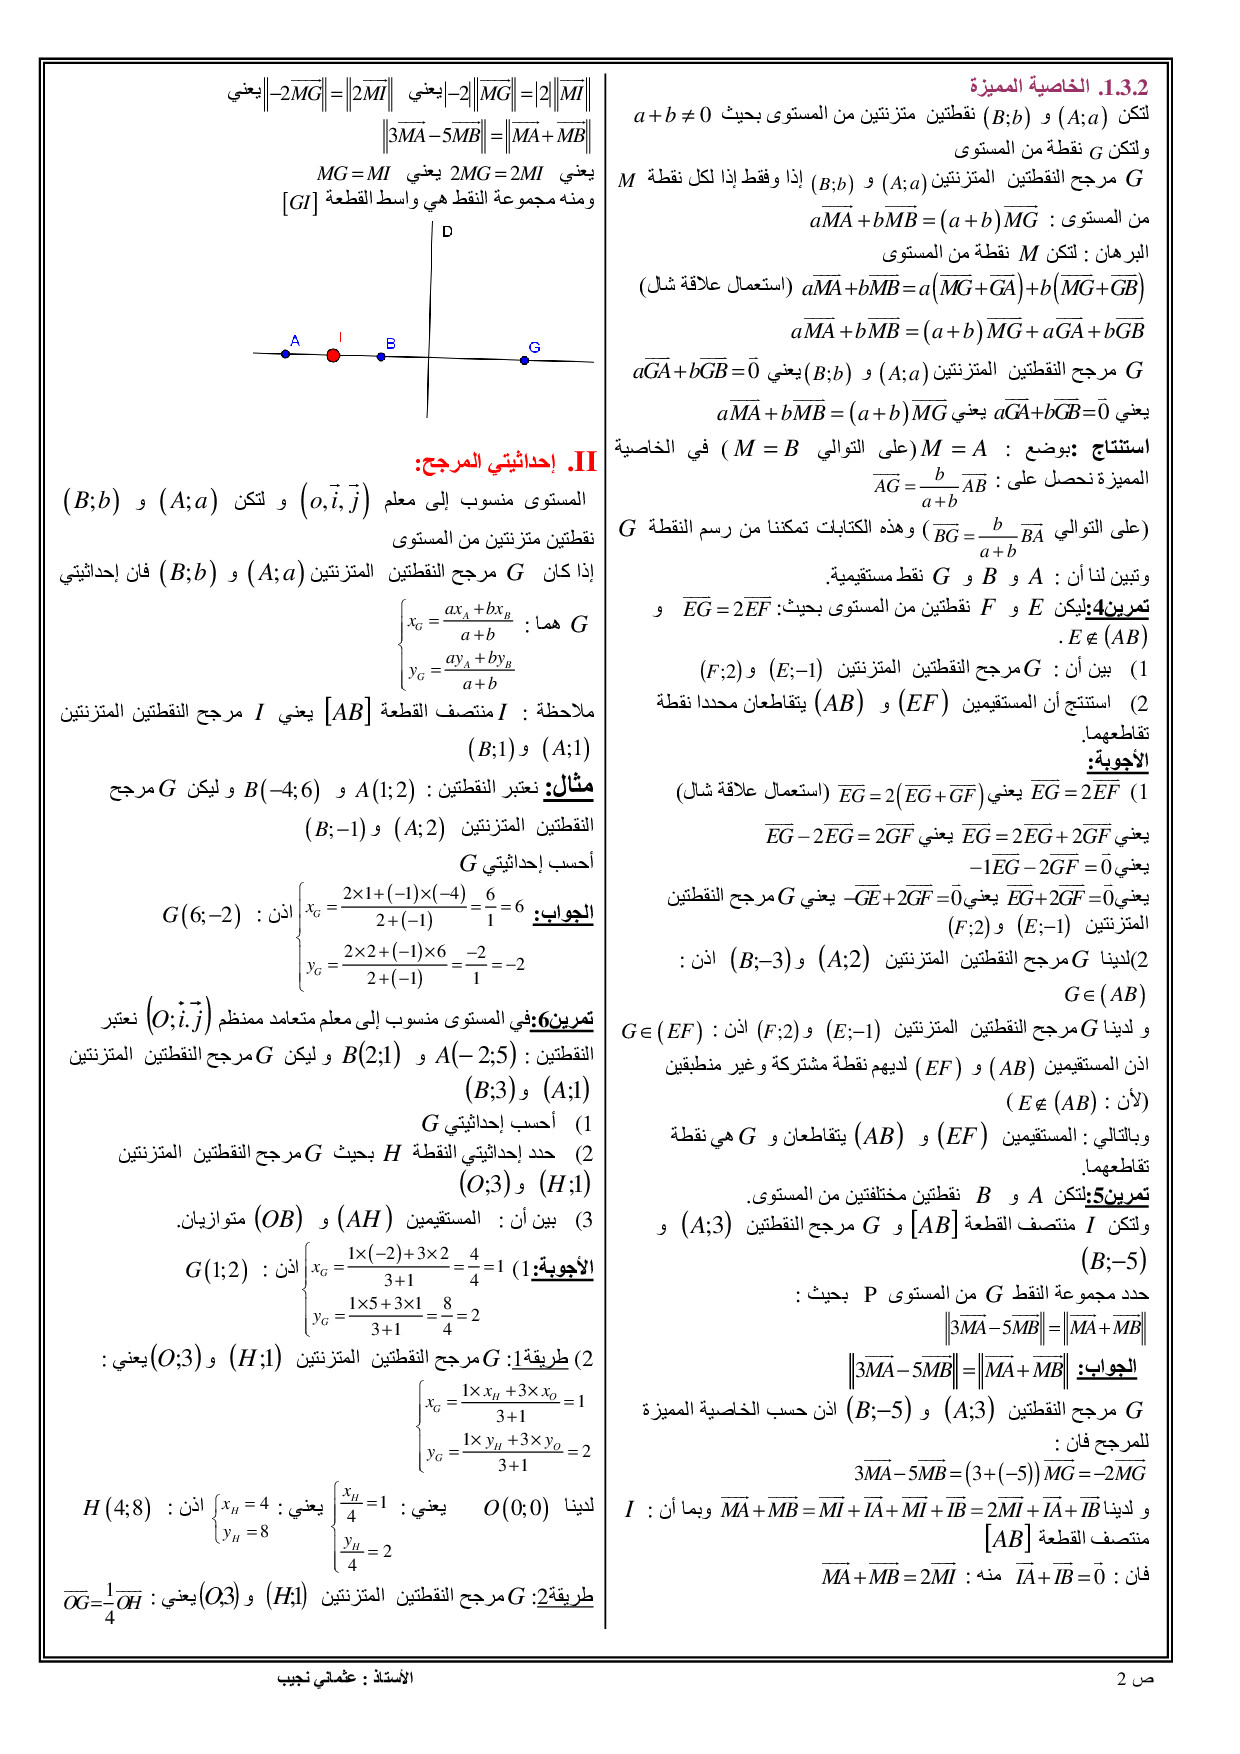 1.3.2. الخاصية المميزة
لتكن (A;a) و (B;b) نقطتين متزنتين من المستوى بحيث a+b≠0
ولتكن G نقطة من المستوى
G مرجح النقطتين المتزنتين (A;a) و (B;b) إذا وفقط إذا لكل نقطة M
من المستوى : aMA + bMB = (a+b)MG
البرهان : لتكن M نقطة من المستوى
aMA+bMB=a(MG+GA)+b(MG+GB) (استعمال علاقة شال)
aMA+bMB=(a+b)MG+aGA+bGB
G مرجح النقطتين المتزنتين (A;a) و (B;b) يعني aGA+bGB=0
يعني aGA+bGB=0 يعني aMA+bMB=(a+b)MG
استنتاج :بوضع : M=A (على التوالي M=B ) في الخاصية
المميزة نحصل على : AG = b/(a+b) AB
(على التوالي BG = b/(a+b) BA ) وهذه الكتابات تمكننا من رسم النقطة G
وتبين لنا أن : A و B و G نقط مستقيمية.
تمرين4:ليكن E و F نقطتين من المستوى بحيث: EG=2EF و
E∉(AB) .
1) بين أن : G مرجح النقطتين المتزنتين (E;−1) و (F;2)
2) استنتج أن المستقيمين (EF) و (AB) يتقاطعان محددا نقطة
تقاطعهما.
الأجوبة:
1) EG=2EF يعني EG=2(EG+GF) (استعمال علاقة شال)
يعني EG=2EG+2GF يعني EG−2EG=2GF
يعني −1EG−2GF=0
يعني EG+2GF=0 يعني −GE+2GF=0 يعني G مرجح النقطتين
المتزنتين (E;−1) و (F;2)
2)لدينا G مرجح النقطتين المتزنتين (A;2) و (B;−3) اذن :
G∈(AB)
و لدينا G مرجح النقطتين المتزنتين (E;−1) و (F;2) اذن : G∈(EF)
اذن المستقيمين (AB) و (EF) لديهم نقطة مشتركة وغير منطبقين
(لأن : E∉(AB) )
وبالتالي : المستقيمين (EF) و (AB) يتقاطعان و G هي نقطة
تقاطعهما.
تمرين5:لتكن A و B نقطتين مختلفتين من المستوى.
ولتكن I منتصف القطعة [AB] و G مرجح النقطتين (A;3) و
(B;−5)
حدد مجموعة النقط G من المستوى P بحيث :
‖3MA−5MB‖=‖MA+MB‖
الجواب: ‖3MA−5MB‖=‖MA+MB‖
G مرجح النقطتين (A;3) و (B;−5) اذن حسب الخاصية المميزة
للمرجح فان :
3MA−5MB=(3+(−5))MG=−2MG
و لدينا MA+MB=MI+IA+MI+IB=2MI+IA+IB وبما أن : I
منتصف القطعة [AB]
فان : IA+IB=0 منه : MA+MB=2MI
‖−2MG‖=‖2MI‖ يعني |−2|‖MG‖=|2|‖MI‖ يعني
‖3MA−5MB‖=‖MA+MB‖
يعني 2MG=2MI يعني MG=MI
ومنه مجموعة النقط هي واسط القطعة [GI]
D
A I B G
II. إحداثيتي المرجح:
المستوى منسوب إلى معلم (o,i,j) و لتكن (A;a) و (B;b)
نقطتين متزنتين من المستوى
إذا كان G مرجح النقطتين المتزنتين (A;a) و (B;b) فان إحداثيتي
G هما : { x_G = (ax_A+bx_B)/(a+b)
y_G = (ay_A+by_B)/(a+b)
ملاحظة : I منتصف القطعة [AB] يعني I مرجح النقطتين المتزنتين
(A;1) و (B;1)
مثال: نعتبر النقطتين : A(1;2) و B(−4;6) و ليكن G مرجح
النقطتين المتزنتين (A;2) و (B;−1)
أحسب إحداثيتي G
الجواب: { x_G = (2×1+(−1)×(−4))/(2+(−1)) = 6/1 = 6 اذن : G(6;−2)
y_G = (2×2+(−1)×6)/(2+(−1)) = −2/1 = −2
تمرين6:في المستوى منسوب إلى معلم متعامد ممنظم (O;i.j) نعتبر
النقطتين : A(−2;5) و B(2;1) و ليكن G مرجح النقطتين المتزنتين
(A;1) و (B;3)
1) أحسب إحداثيتي G
2) حدد إحداثيتي النقطة H بحيث G مرجح النقطتين المتزنتين
(H;1) و (O;3)
3) بين أن : المستقيمين (AH) و (OB) متوازيان.
الأجوبة:1) { x_G = (1×(−2)+3×2)/(3+1) = 4/4 = 1 اذن : G(1;2)
y_G = (1×5+3×1)/(3+1) = 8/4 = 2
2) طريقة1: G مرجح النقطتين المتزنتين (H;1) و (O;3) يعني :
{ x_G = (1×x_H+3×x_O)/(3+1) = 1
y_G = (1×y_H+3×y_O)/(3+1) = 2
لدينا O(0;0) يعني : { x_H/4 = 1 ; y_H/4 = 2 يعني : { x_H=4 ; y_H=8 اذن : H(4;8)
طريقة2: G مرجح النقطتين المتزنتين (H;1) و (O;3) يعني : OG=1/4 OH
ص 2
الأستاذ : عثماني نجيب